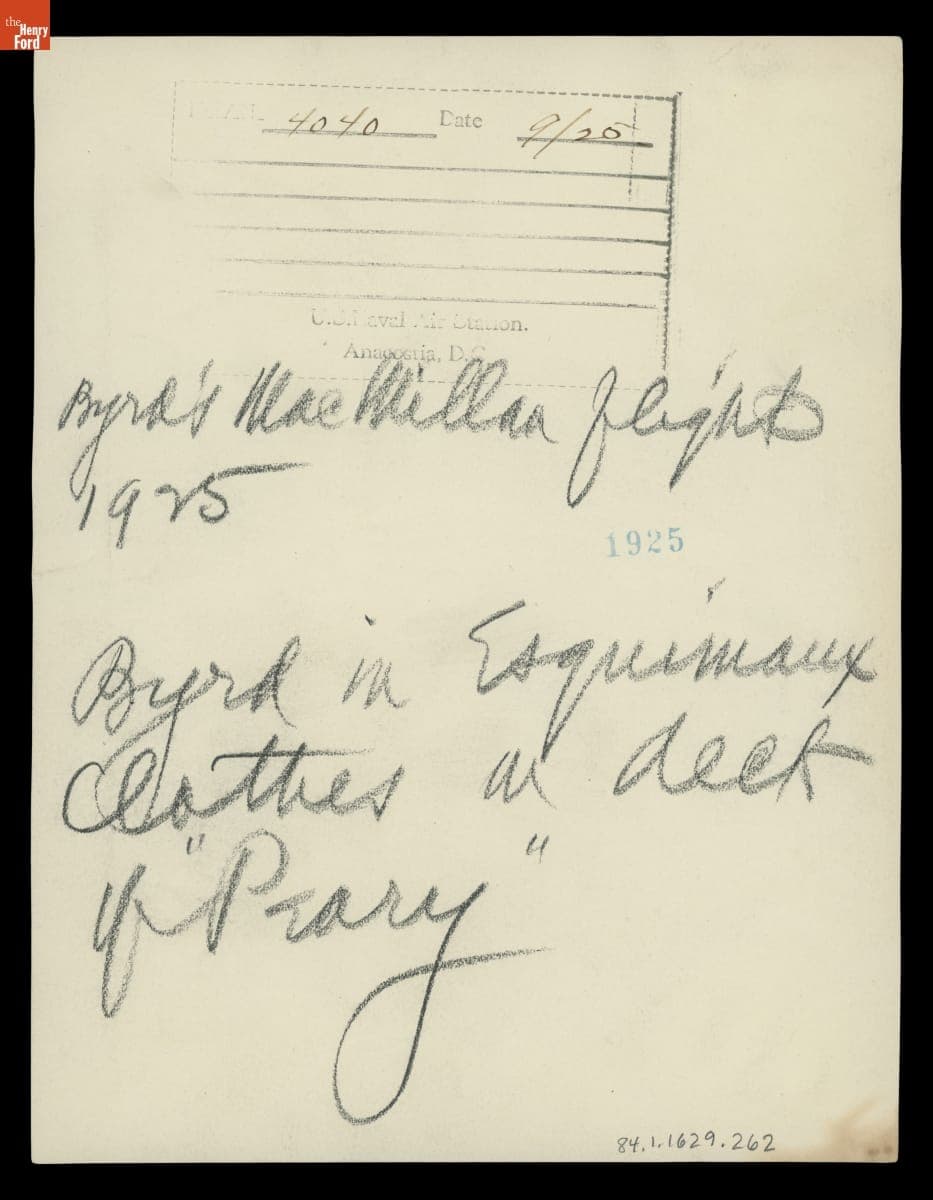 the
Henry
Ford
4040 Date 9/25
U.S. Naval Air Station.
Anacostia, D.C.
Byrd's MacMillan flights
1925
1925
Byrd in Esquimaux
Clothes on deck
of "Peary"
84.1.1629.262